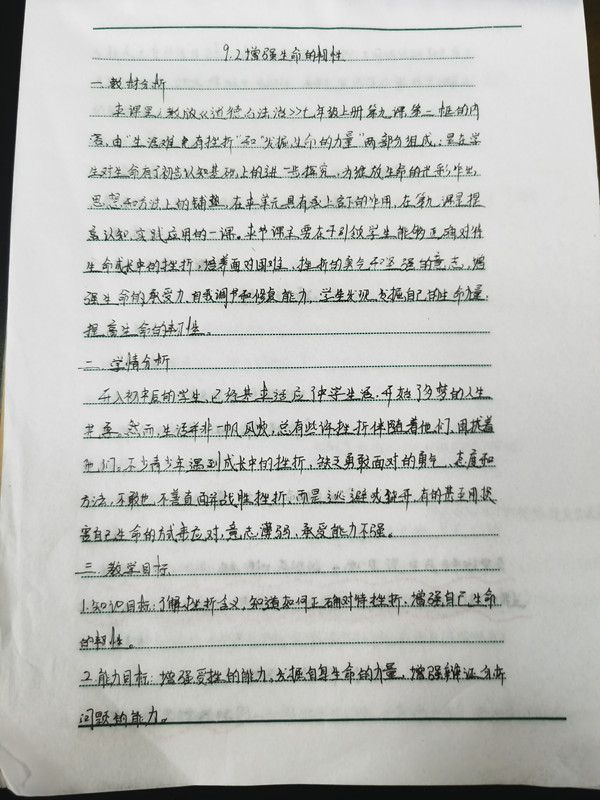 9.2增强生命的韧性
一.教材分析
本课是人教版《道德与法治>>七年级上册第九课第二框的内
容,由“生活难免有挫折”和“发掘生命的力量”两部分组成,是在学
生对生命有了初步认知基础上的进一步探究,为绽放生命的光彩作出
思想和方法上的铺垫,在本单元具有承上启下的作用,在第九课是提
高认知,实践应用的一课。本节课主要在于引领学生能够正确对待
生命成长中的挫折,培养面对困难、挫折的勇气和坚强的意志,增
强生命的承受力、自我调节和修复能力,学生发现、发掘自己的生命力量,
提高生命的韧性。
二.学情分析
升入初中后的学生,已经基本适应了中学生活,开始了多梦的人生
共享。然而,生活并非一帆风顺,总有些许挫折伴随着他们、困扰着
他们。不少青少年遇到成长中的挫折,缺乏勇敢面对的勇气、态度和
方法,不敢也不善直面并战胜挫折,而是逃避或躲开,有的甚至用损
害自己生命的方式来应对,意志薄弱、承受能力不强。
三.教学目标
1.知识目标:了解挫折含义,知道如何正确对待挫折,增强自己生命
的韧性。
2.能力目标:增强受挫的能力,发掘自身生命的力量,增强辩证分析
问题的能力。